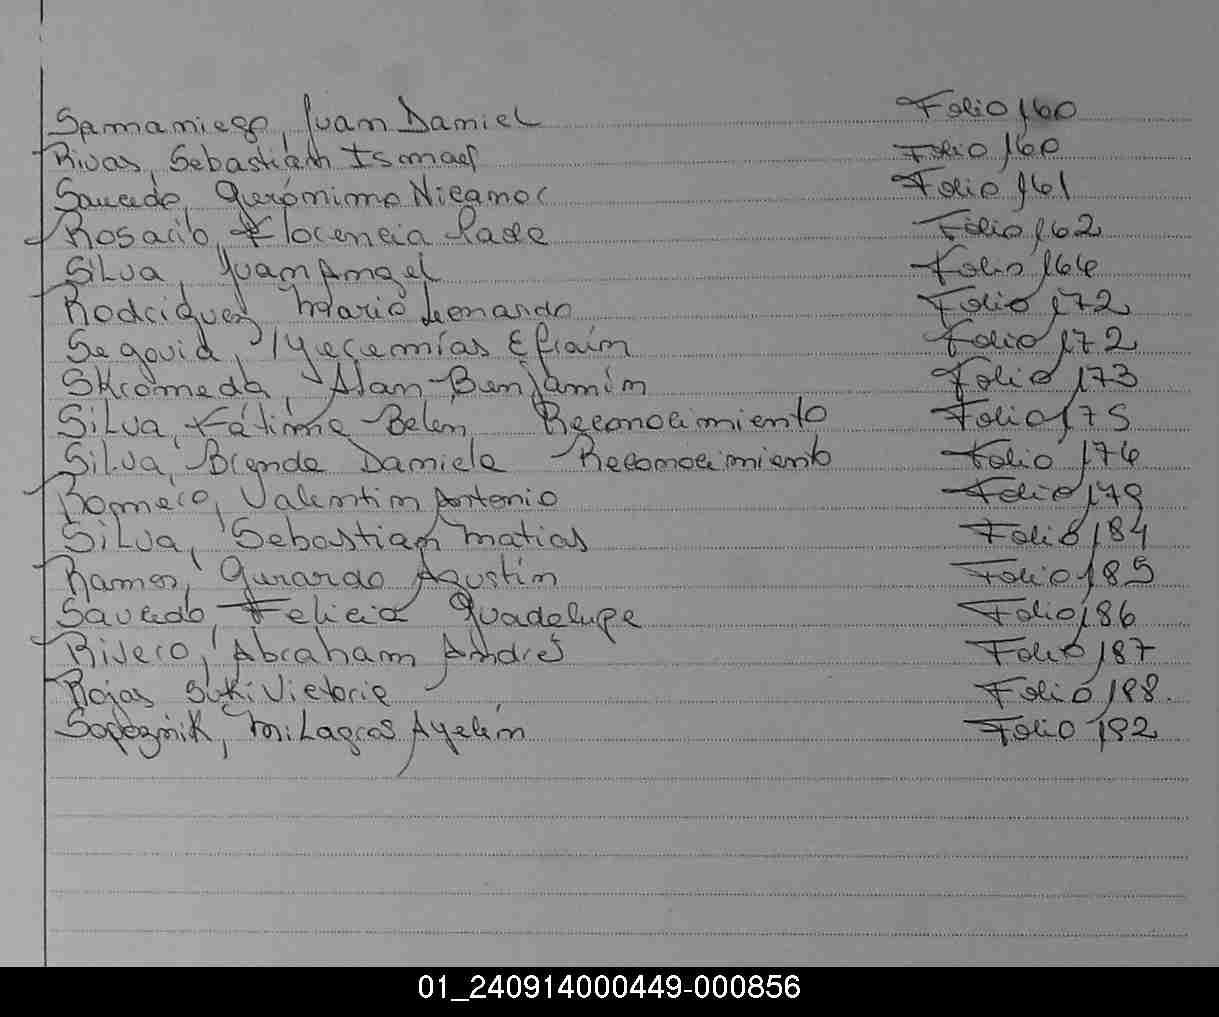 Samaniego, Juan Daniel Folio 160
Rivas, Sebastián Ismael Folio 160
Saucedo, Gerónimo Nicanor Folio 161
Rosario, Florencia Folio 162
Silva, Juan Angel Folio 164
Rodriguez, Mario Leonardo Folio 172
Segovia, Efraín Folio 172
Skromeda, Alan Benjamín Folio 173
Silva, Fátima Belen Reconocimiento Folio 175
Silva, Brenda Daniela Reconocimiento Folio 176
Romero, Valentin Antonio Folio 179
Silva, Sebastian Matias Folio 184
Ramos, Gerardo Agustín Folio 185
Saucedo, Felicia Guadelupe Folio 186
Rivero, Abraham Andrés Folio 187
Rojas Suki Victoria Folio 188.
Sopoznik, Milagros Ayelén Folio 192
01_240914000449-000856